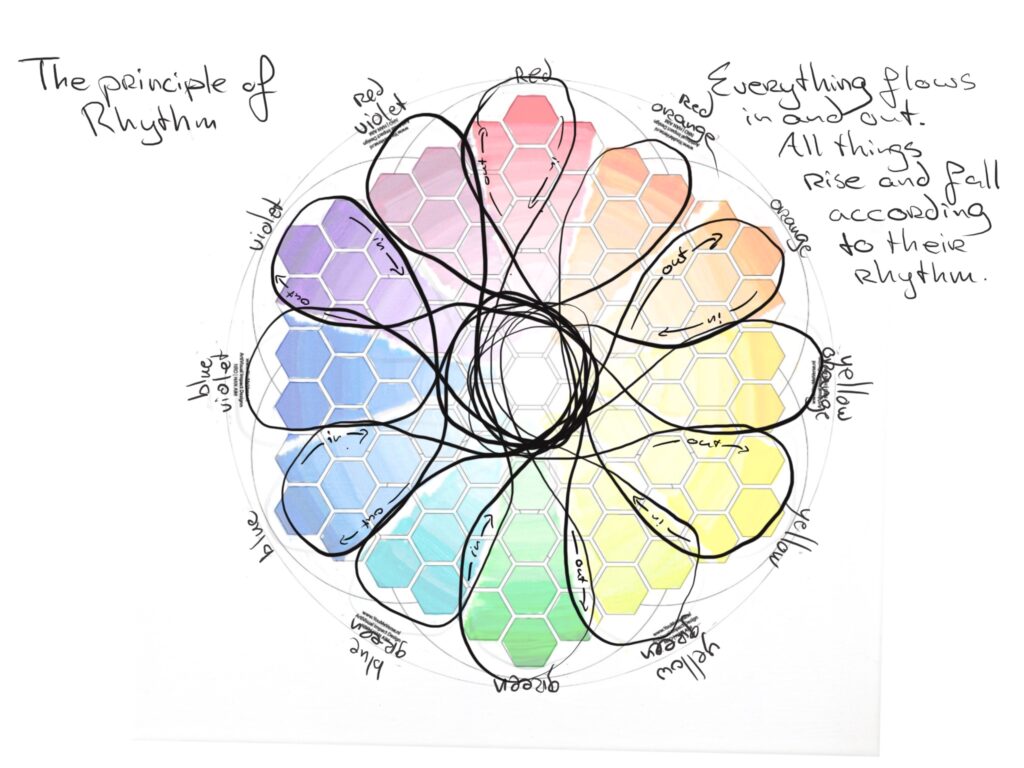 The principle of
Rhythm
Everything flows
in and out.
All things
rise and fall
according
to their
rhythm.
Red
Red
orange
orange
yellow
orange
yellow
yellow
green
green
blue
green
blue
blue
violet
violet
Red
violet
out
in
out
in
out
in
out
in
out
in
in
out